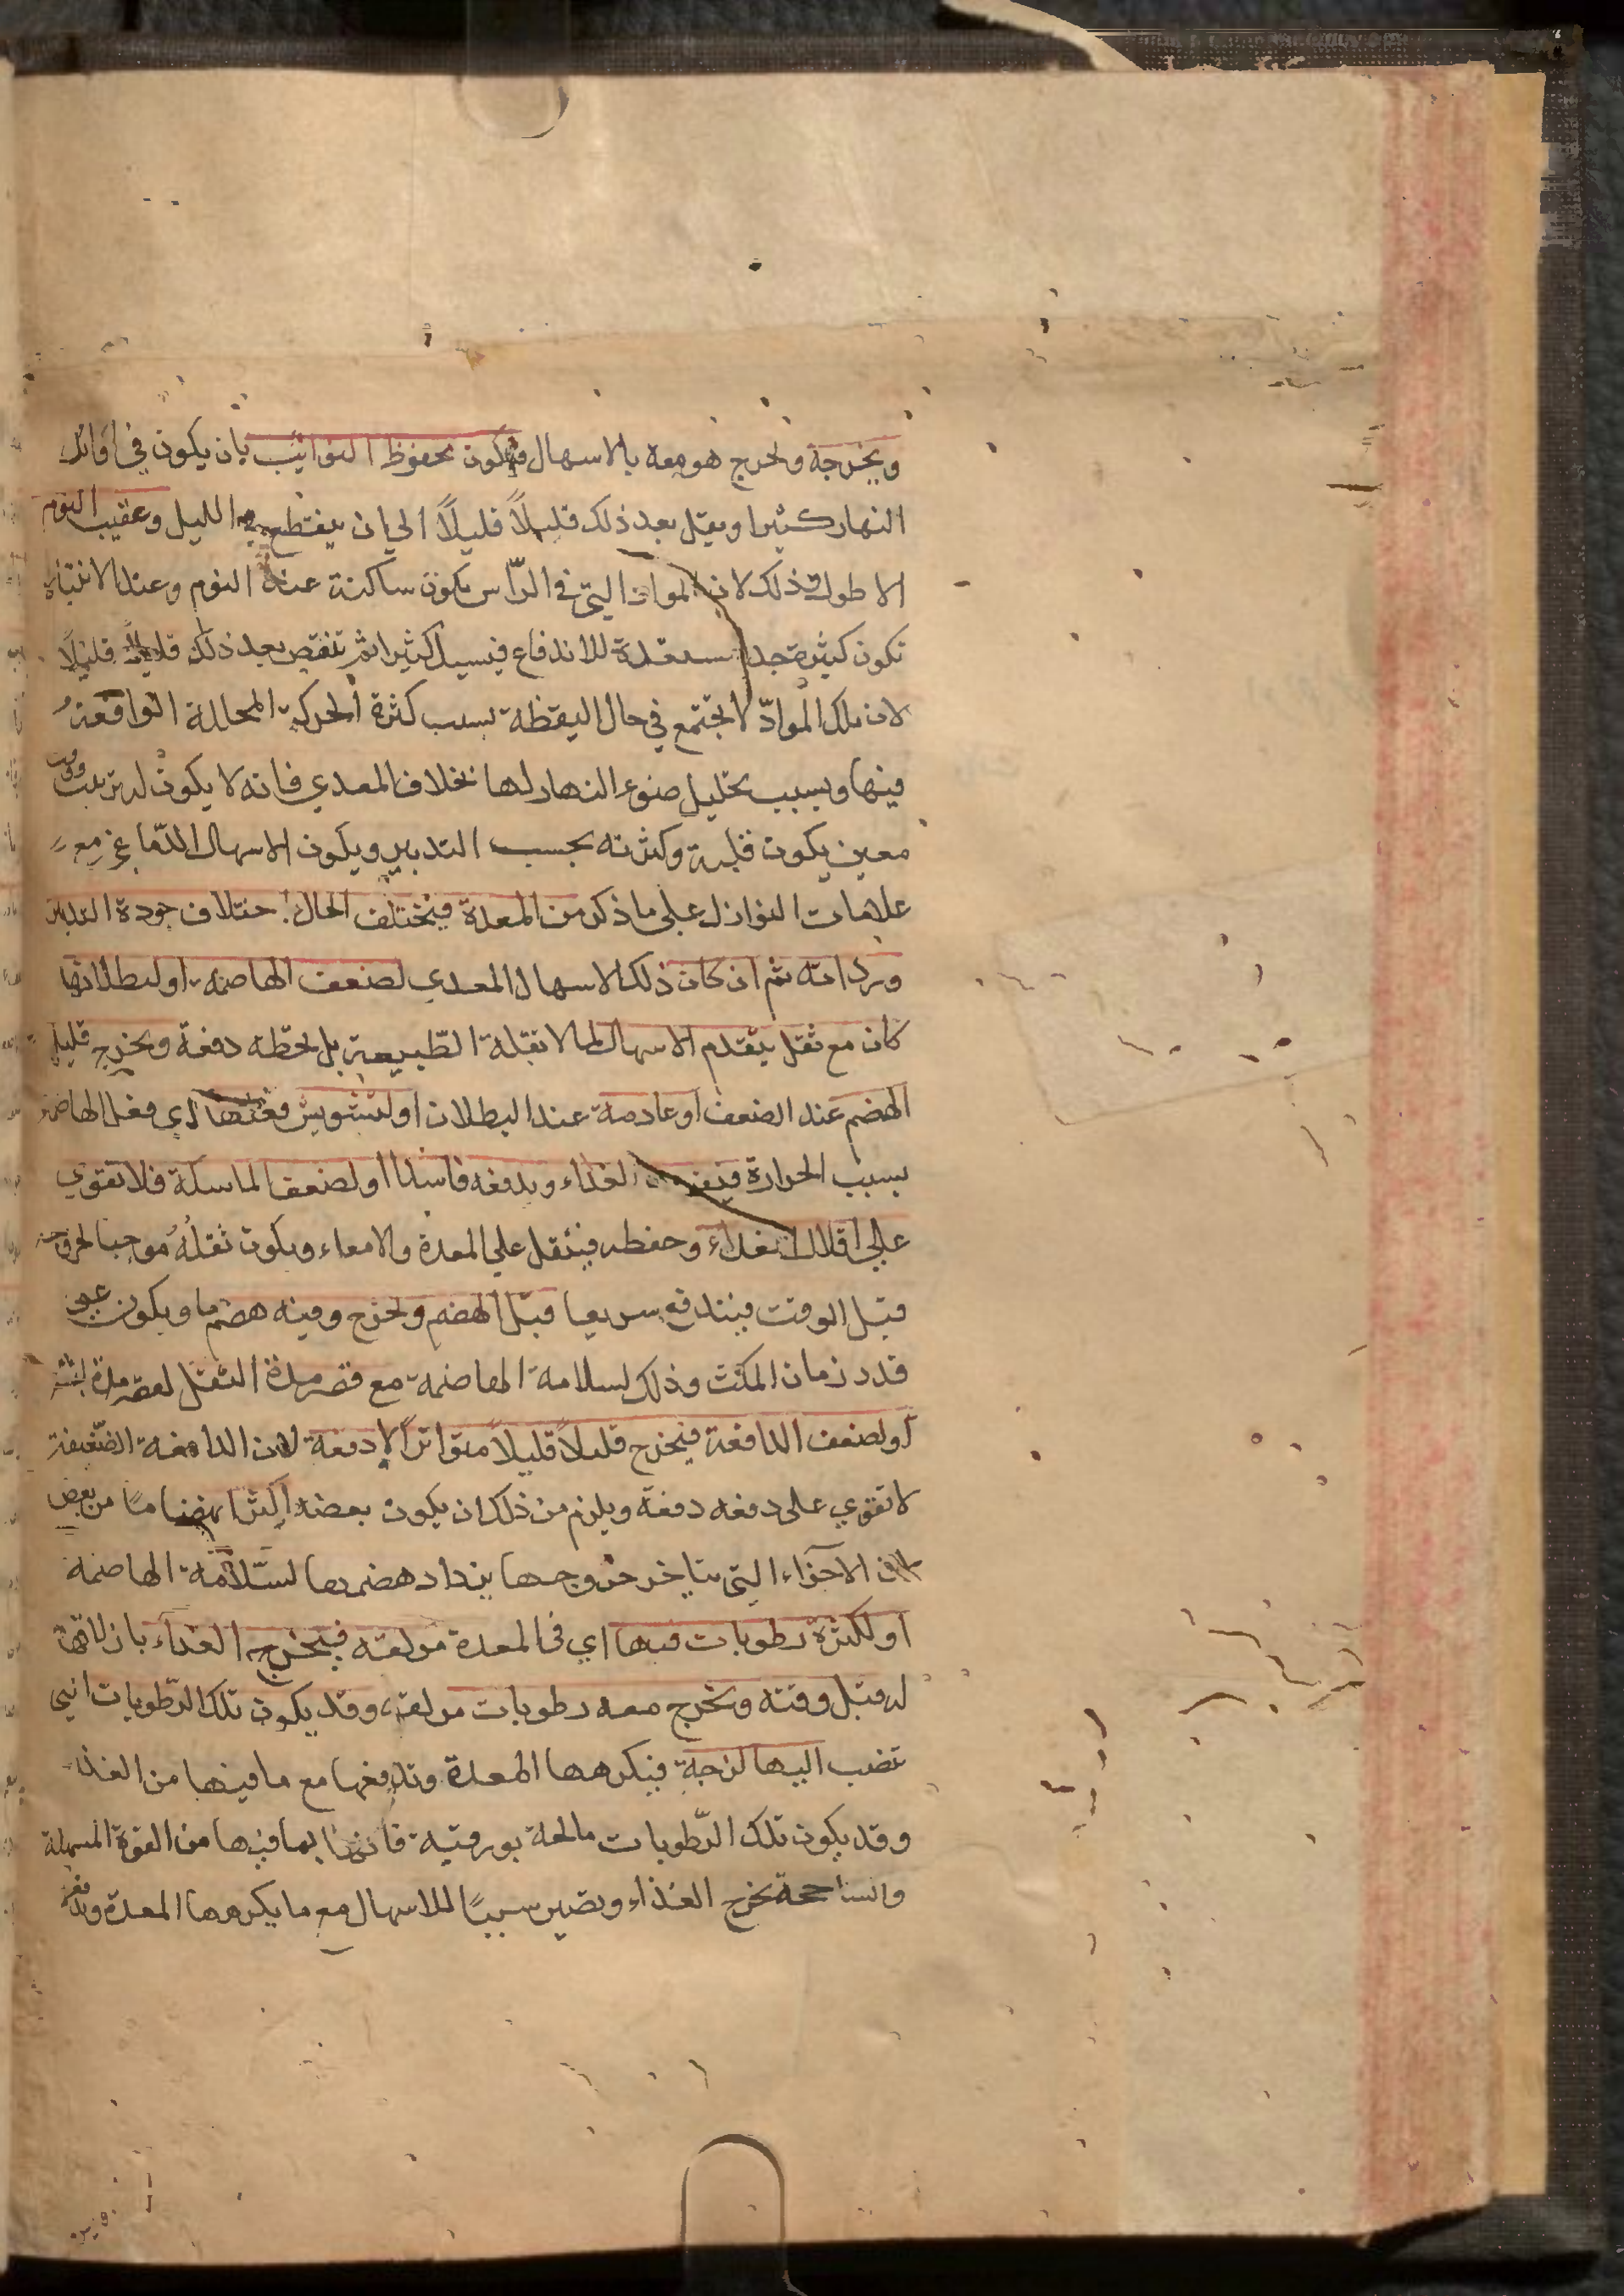 ويخرجه ويخرج هو معه بالاسهال فيكون محفوظ النوائب بان يكون في اوائل
النهار كثيرا ويقل بعد ذلك قليلاً قليلاً الى ان ينقطع في الليل وعقيب النوم
الاطول وذلك لان المواد التي في الرّاس تكون ساكنة عند النوم وعند الانتباه
تكون كثيرة جدا مستعدة للاندفاع فيسيل كثيرا ثم تنقص بعد ذلك قليلاً قليلاً
لان تلك الموادّ لا تجتمع في حال اليقظة بسبب كثرة الحركة المحللة الواقعة
فيها وبسبب تحليل ضوء النهار لها بخلاف المعدي فانه لا يكون له ترتيب وقت
معين يكون قلته وكثرته بحسب التدبير ويكون الاسهال الدّماغي مع
علامات النوازل على ما ذكر من المعدة فيختلف الحال باختلاف جودة التدبير
ورداءته ثم ان كان ذلك الاسهال المعدي لضعف الهاضمة او لبطلانها
كان مع ثقل يتقدم الاسهال لما لا تقبله الطّبيعة بل تحطه دفعة ويخرج قليل
الهضم عند الضعف او عادمه عند البطلان او لتشويش فعلها اي فعل الهاضمة
بسبب الحرارة الغذاء ويدفعه فاسدا او لضعف الماسكة فلا تقوي
على اقلال الغذاء وحفظه فيثقل على المعدة والامعاء ويكون ثقلُهُ موجبا لخروجه
قبل الوقت فيندفع سريعا قبل الهضم ويخرج وفيه هضم ما ويكون علي
قدر زمان المكث وذلك لسلامة الهاضمة مع قصر مدة الثقل لقصر مدة
او لضعف الدافعة فيخرج قليلاً قليلاً متواتراً لا دفعة لان الدافعة الضّعيفة
لا تقوي على دفعه دفعة ويلزم من ذلك ان يكون بعضه اكثر انهضاما من بعض
لان الاجزاء التي يتاخر خروجها يزداد هضمها لسّلامة الهاضمة
او لكثرة رطوبات فيها اي في المعدة مزلقة فيخرج الغذاء بازلاقها
له قبل وقته ويخرج معه رطوبات مزلقة وقد يكون تلك الرّطوبات التي
تنصب اليها لزجة فيكرهها المعدة وتدفعها مع ما فيها من الغذاء
وقد يكون تلك الرّطوبات مالحة بورقية فانها بما فيها من القوة المسهلة
والساحجة تخرج الغذاء ويصير سببًا للاسهال مع ما يكرهها المعدة وتدفعها